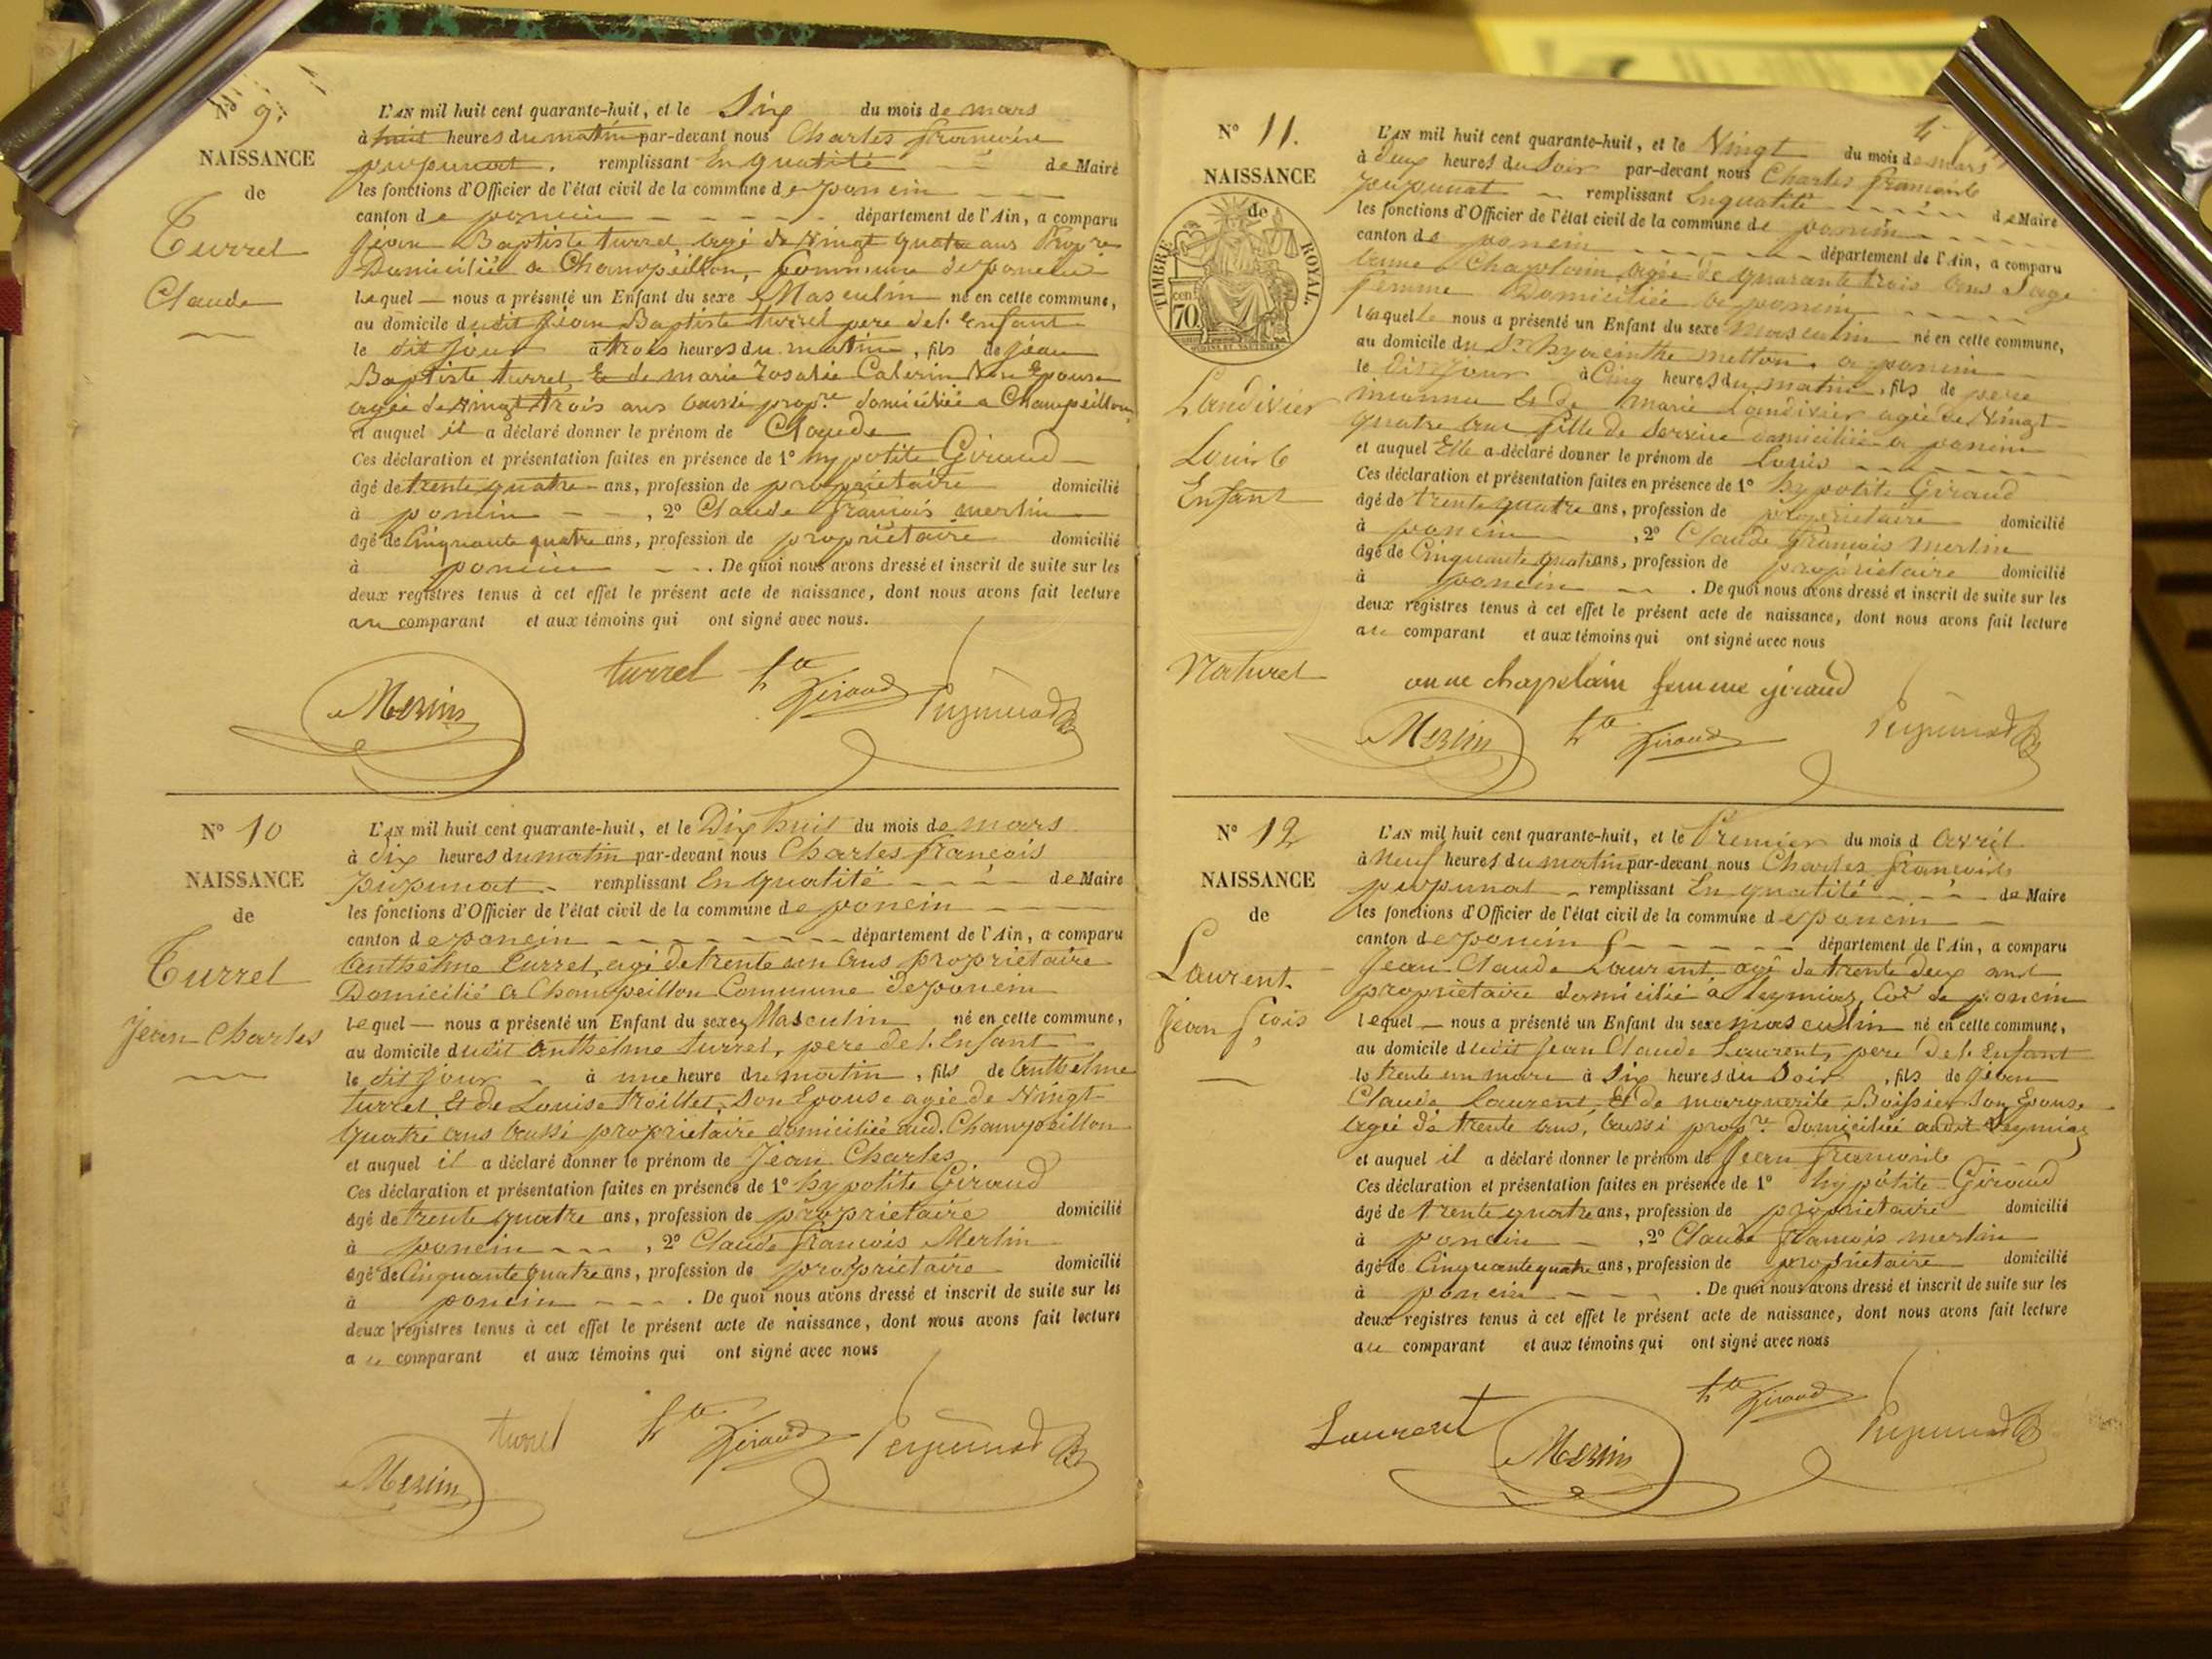 N° 9.
NAISSANCE
de
Turrel
Claude
L'AN mil huit cent quarante-huit, et le Six du mois de mars
à huit heures du matin par-devant nous Charles françois
puypunat. remplissant En qualité de Maire
les fonctions d'Officier de l'état civil de la commune de poncin
canton de poncin département de l'Ain, a comparu
jean Baptiste turrel agé de Vingt quatre ans Propre
Domicilié a Champeillon, Commune de poncin
lequel nous a présenté un Enfant du sexe Masculin né en cette commune,
au domicile dudit jean Baptiste turrel pere de l'enfant
le dit jour à trois heures du matin, fils de jean
Baptiste turrel, Et de marie rosalie Son Epouse
agée de Vingt trois ans aussi propre domiciliée a Champeillon
et auquel il a déclaré donner le prénom de Claude
Ces déclaration et présentation faites en présence de 1° hypolite Giraud
âgé de trente quatre ans, profession de propriétaire domicilié
à poncin, 2° Claude françois merlin
âgé de Cinquante quatre ans, profession de propriétaire domicilié
à poncin. De quoi nous avons dressé et inscrit de suite sur les
deux registres tenus à cet effet le présent acte de naissance, dont nous avons fait lecture
au comparant et aux témoins qui ont signé avec nous.
turrel hte Giraud
Merlin
N° 10
NAISSANCE
de
Turrel
jean Charles
L'AN mil huit cent quarante-huit, et le Dix huit du mois de mars
à dix heures du matin par-devant nous Charles françois
puypunat. remplissant En qualité de Maire
les fonctions d'Officier de l'état civil de la commune de poncin
canton de poncin département de l'Ain, a comparu
Anthelme turrel, agé de trente un ans propriétaire
Domicilié a Champeillon Commune de poncin
lequel nous a présenté un Enfant du sexe Masculin né en cette commune,
au domicile dudit Anthelme turrel, pere de l'Enfant
le dit jour à une heure du matin, fils de Anthelme
turrel Et de Louise troillet, Son Epouse agée de Vingt
quatre ans aussi propriétaire domiciliée aud. Champeillon
et auquel il a déclaré donner le prénom de Jean Charles
Ces déclaration et présentation faites en présence de 1° hypolite Giraud
âgé de trente quatre ans, profession de propriétaire domicilié
à poncin, 2° Claude françois Merlin
âgé de Cinquante quatre ans, profession de propriétaire domicilié
à poncin. De quoi nous avons dressé et inscrit de suite sur les
deux registres tenus à cet effet le présent acte de naissance, dont nous avons fait lecture
au comparant et aux témoins qui ont signé avec nous
turrel hte Giraud
Merlin
N° 11.
NAISSANCE
de
TIMBRE ROYAL
70 cent
Landivier
Louis
Enfant
Naturel
L'AN mil huit cent quarante-huit, et le Vingt du mois de mars
à deux heures du Soir par-devant nous Charles françois
puypunat remplissant En qualité de Maire
les fonctions d'Officier de l'état civil de la commune de poncin
canton de poncin département de l'Ain, a comparu
Chapelain agée de quarante trois ans Sage
femme Domiciliée a poncin
laquelle nous a présenté un Enfant du sexe Masculin né en cette commune,
au domicile du Sr hyacinthe metton a poncin
le dit jour à Cinq heures du matin, fils de pere
inconnu Et de Marie Landivier agée de Vingt
quatre ans fille de Service domiciliée a poncin
et auquel Elle a déclaré donner le prénom de Louis
Ces déclaration et présentation faites en présence de 1° hypolite Giraud
âgé de trente quatre ans, profession de propriétaire domicilié
à poncin, 2° Claude françois Merlin
âgé de Cinquante quatre ans, profession de propriétaire domicilié
à poncin. De quoi nous avons dressé et inscrit de suite sur les
deux registres tenus à cet effet le présent acte de naissance, dont nous avons fait lecture
au comparant et aux témoins qui ont signé avec nous
anne chapelain femme giraud
Merlin hte Giraud
N° 12
NAISSANCE
de
Laurent
jean fçois
L'AN mil huit cent quarante-huit, et le Premier du mois d avril
à Neuf heures du matin par-devant nous Charles françois
puypunat remplissant En qualité de Maire
les fonctions d'Officier de l'état civil de la commune de poncin
canton de poncin département de l'Ain, a comparu
Jean Claude Laurent, agé de trente deux ans
propriétaire domicilié a leymiaz, Coe de poncin
lequel nous a présenté un Enfant du sexe masculin né en cette commune,
au domicile dudit Jean Claude Laurent, pere de l'Enfant
le trente un mars à Six heures du Soir, fils de jean
Claude Laurent, Et de marguerite Boissier Son Epouse
agée de trente ans, aussi propre domiciliée audit Leymiaz
et auquel il a déclaré donner le prénom de Jean françois
Ces déclaration et présentation faites en présence de 1° hypolite Giraud
âgé de trente quatre ans, profession de propriétaire domicilié
à poncin, 2° Claude françois merlin
âgé de Cinquante quatre ans, profession de propriétaire domicilié
à poncin. De quoi nous avons dressé et inscrit de suite sur les
deux registres tenus à cet effet le présent acte de naissance, dont nous avons fait lecture
au comparant et aux témoins qui ont signé avec nous
Laurent hte Giraud
Merlin